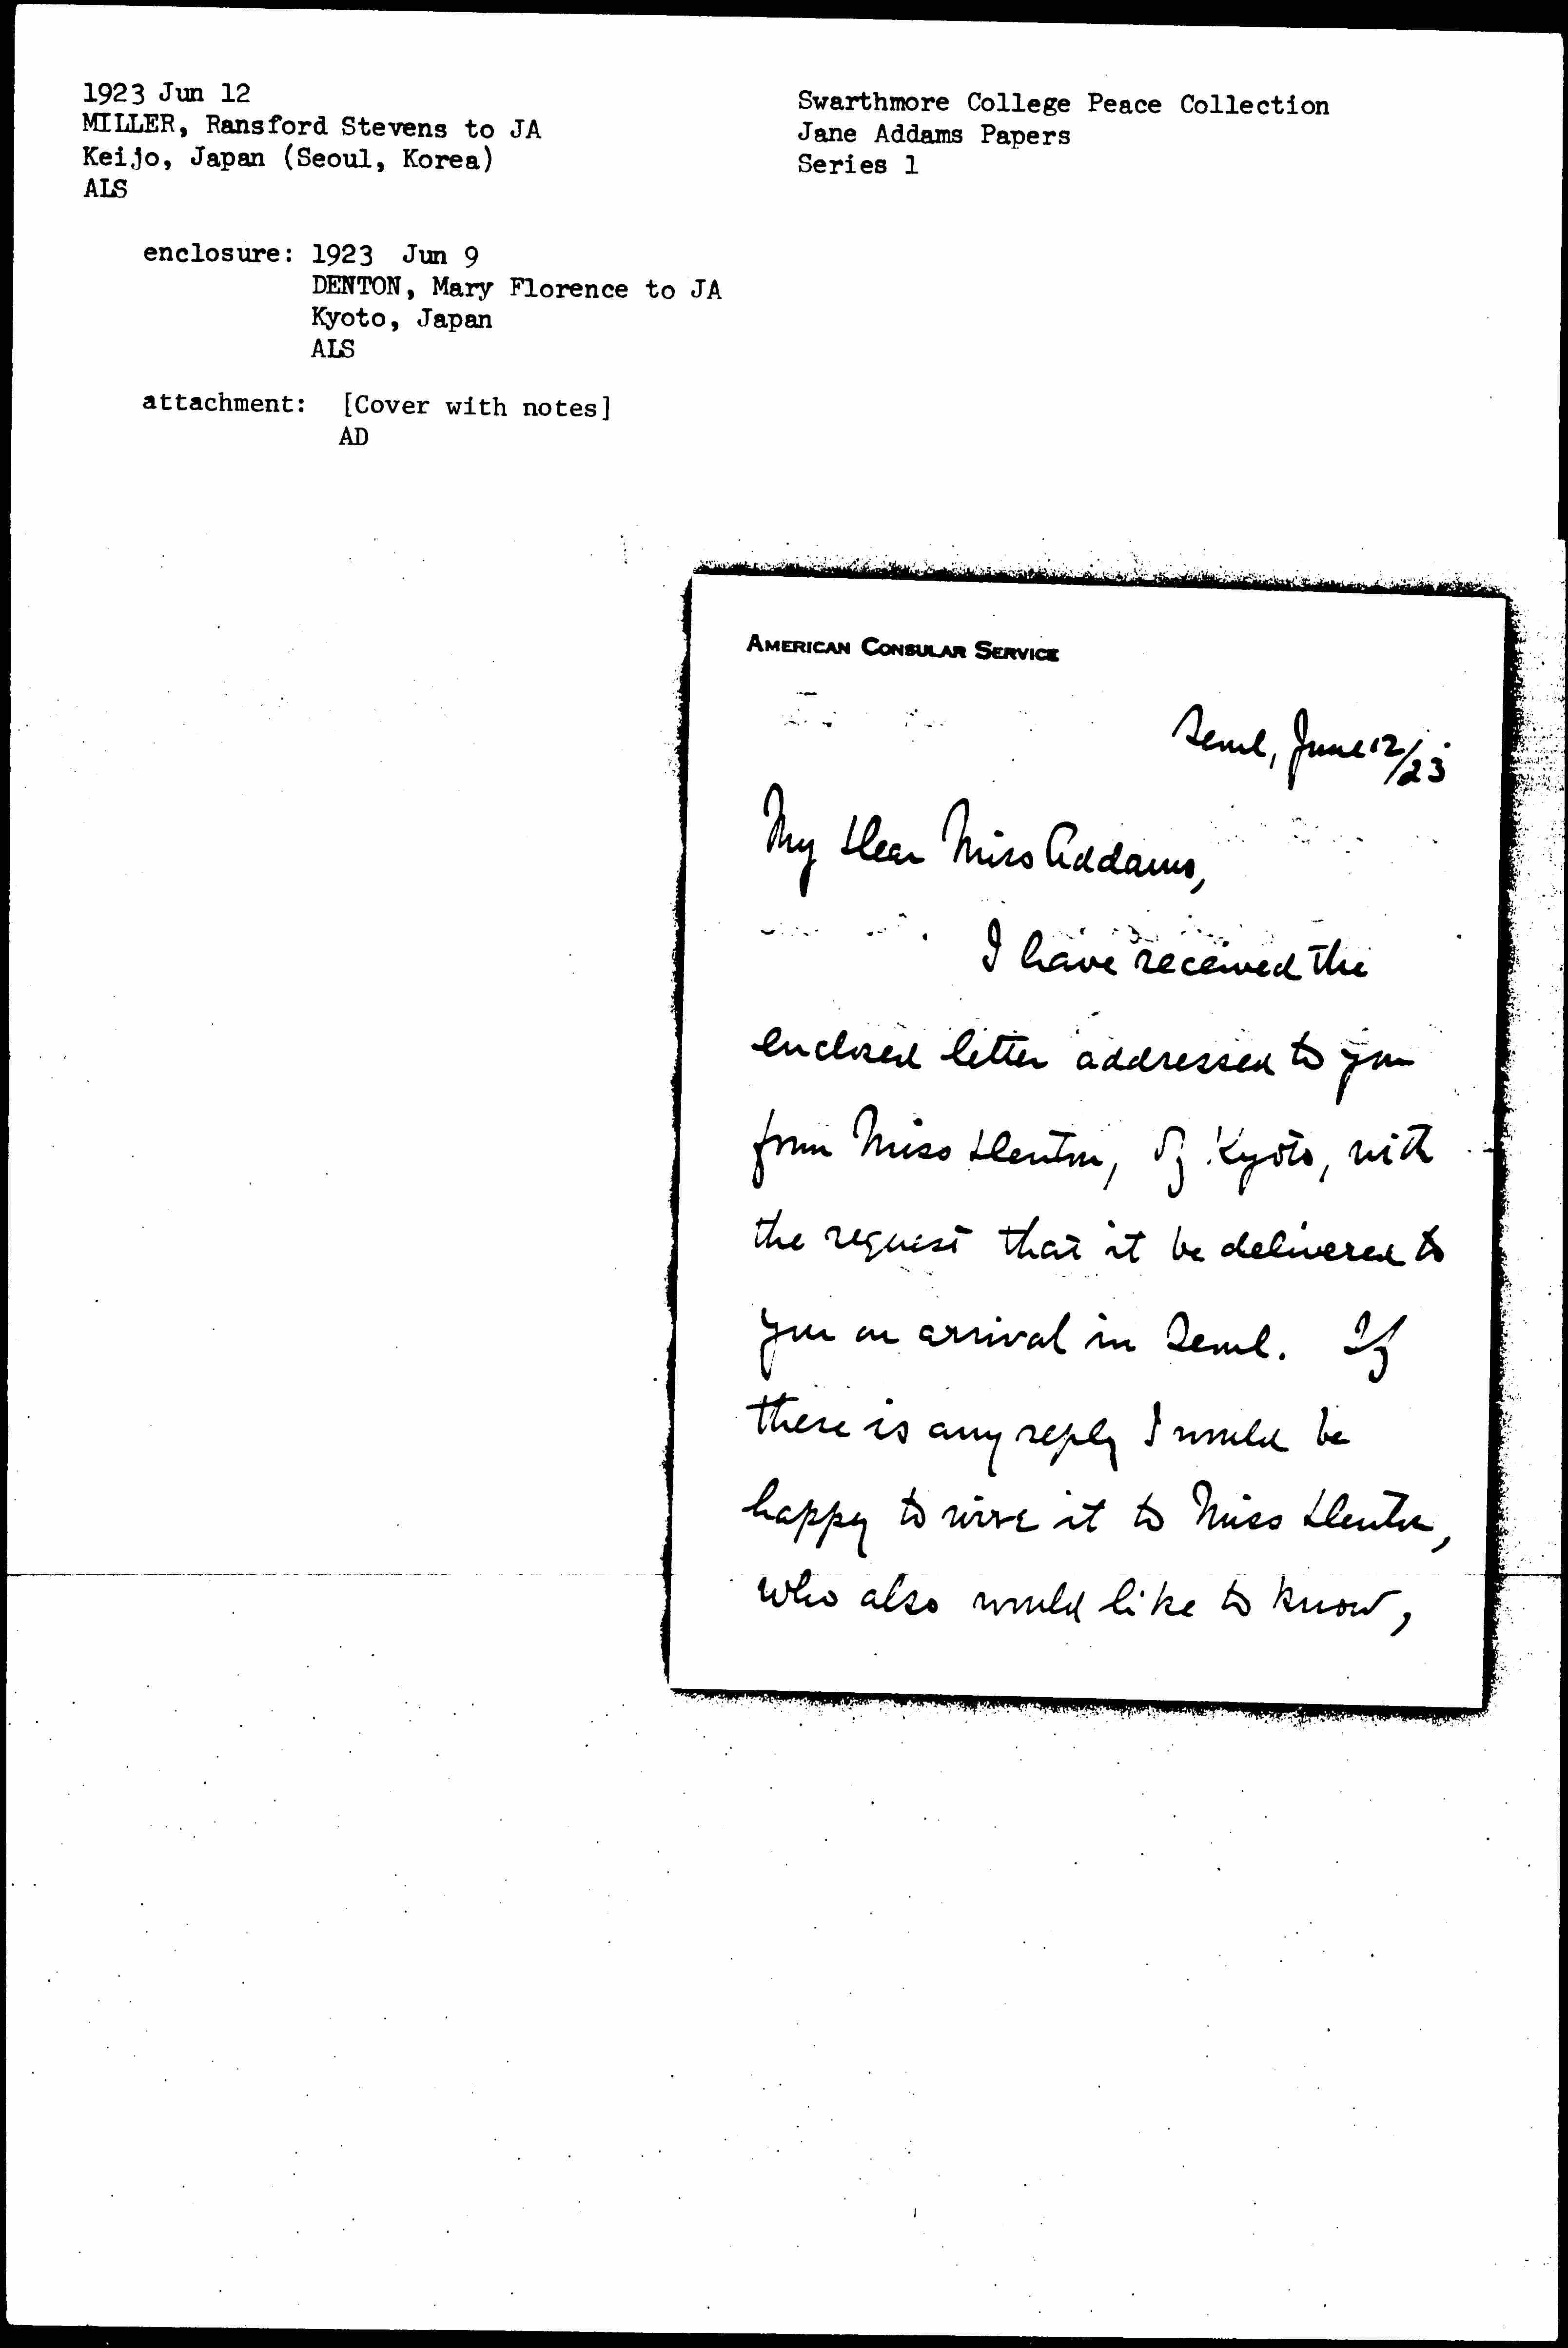 1923 Jun 12
MILLER, Ransford Stevens to JA
Keijo, Japan (Seoul, Korea)
ALS
Swarthmore College Peace Collection
Jane Addams Papers
Series 1
enclosure: 1923 Jun 9
DENTON, Mary Florence to JA
Kyoto, Japan
ALS
attachment: [Cover with notes]
AD
AMERICAN CONSULAR SERVICE
Seoul, June 12/23
My dear Miss Addams,
I have received the
enclosed letter addressed to you
from Miss Denton, of Kyōto, with
the request that it be delivered to
you on arrival in Seoul. If
there is any reply I would be
happy to wire it to Miss Denton,
who also would like to know,